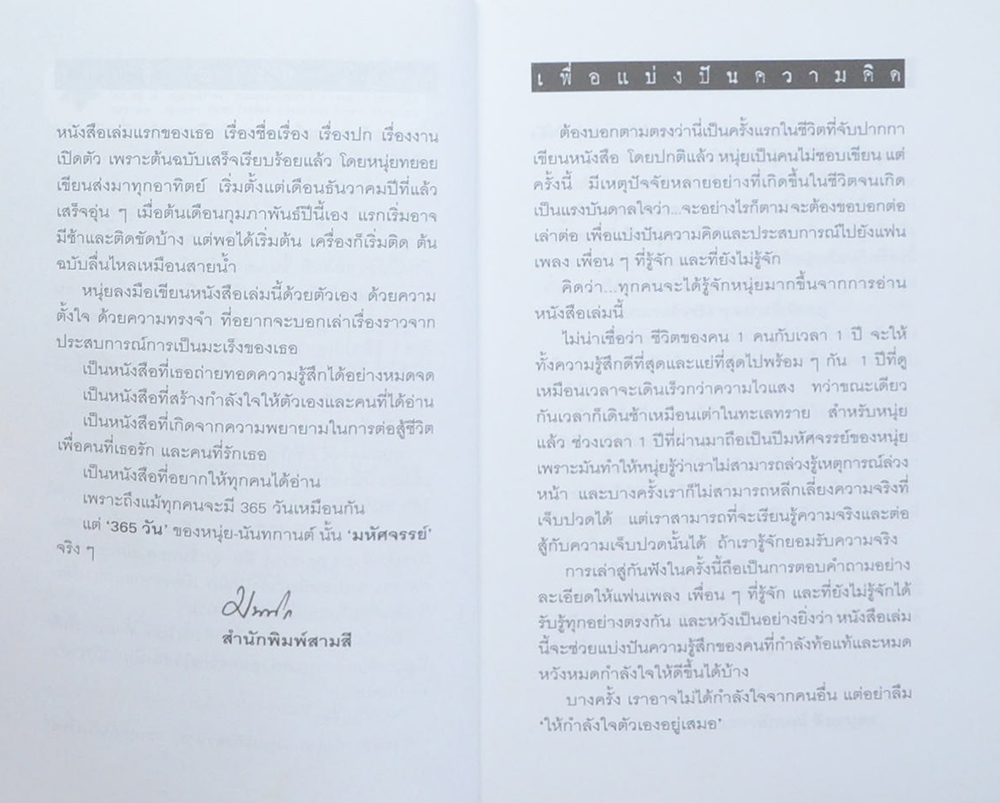 หนังสือเล่มแรกของเธอ เรื่องชื่อเรื่อง เรื่องปก เรื่องงาน
เปิดตัว เพราะต้นฉบับเสร็จเรียบร้อยแล้ว โดยหนุ่ยทยอย
เขียนส่งมาทุกอาทิตย์ เริ่มตั้งแต่เดือนธันวาคมปีที่แล้ว
เสร็จอุ่น ๆ เมื่อต้นเดือนกุมภาพันธ์ปีนี้เอง แรกเริ่มอาจ
มีช้าและติดขัดบ้าง แต่พอได้เริ่มต้น เครื่องก็เริ่มติด ต้น
ฉบับลื่นไหลเหมือนสายน้ำ
หนุ่ยลงมือเขียนหนังสือเล่มนี้ด้วยตัวเอง ด้วยความ
ตั้งใจ ด้วยความทรงจำ ที่อยากจะบอกเล่าเรื่องราวจาก
ประสบการณ์การเป็นมะเร็งของเธอ
เป็นหนังสือที่เธอถ่ายทอดความรู้สึกได้อย่างหมดจด
เป็นหนังสือที่สร้างกำลังใจให้ตัวเองและคนที่ได้อ่าน
เป็นหนังสือที่เกิดจากความพยายามในการต่อสู้ชีวิต
เพื่อคนที่เธอรัก และคนที่รักเธอ
เป็นหนังสือที่อยากให้ทุกคนได้อ่าน
เพราะถึงแม้ทุกคนจะมี 365 วันเหมือนกัน
แต่ ‘365 วัน’ ของหนุ่ย-นันทกานต์ นั้น ‘มหัศจรรย์’
จริง ๆ
สำนักพิมพ์สามสี
เพื่อแบ่งปันความคิด
ต้องบอกตามตรงว่านี่เป็นครั้งแรกในชีวิตที่จับปากกา
เขียนหนังสือ โดยปกติแล้ว หนุ่ยเป็นคนไม่ชอบเขียน แต่
ครั้งนี้ มีเหตุปัจจัยหลายอย่างที่เกิดขึ้นในชีวิตจนเกิด
เป็นแรงบันดาลใจว่า...จะอย่างไรก็ตามจะต้องขอบอกต่อ
เล่าต่อ เพื่อแบ่งปันความคิดและประสบการณ์ไปยังแฟน
เพลง เพื่อน ๆ ที่รู้จัก และที่ยังไม่รู้จัก
คิดว่า...ทุกคนจะได้รู้จักหนุ่ยมากขึ้นจากการอ่าน
หนังสือเล่มนี้
ไม่น่าเชื่อว่า ชีวิตของคน 1 คนกับเวลา 1 ปี จะให้
ทั้งความรู้สึกดีที่สุดและแย่ที่สุดไปพร้อม ๆ กัน 1 ปีที่ดู
เหมือนเวลาจะเดินเร็วกว่าความไวแสง ทว่าขณะเดียว
กันเวลาก็เดินช้าเหมือนเต่าในทะเลทราย สำหรับหนุ่ย
แล้ว ช่วงเวลา 1 ปีที่ผ่านมาถือเป็นปีมหัศจรรย์ของหนุ่ย
เพราะมันทำให้หนุ่ยรู้ว่าเราไม่สามารถล่วงรู้เหตุการณ์ล่วง
หน้า และบางครั้งเราก็ไม่สามารถหลีกเลี่ยงความจริงที่
เจ็บปวดได้ แต่เราสามารถที่จะเรียนรู้ความจริงและต่อ
สู้กับความเจ็บปวดนั้นได้ ถ้าเรารู้จักยอมรับความจริง
การเล่าสู่กันฟังในครั้งนี้ถือเป็นการตอบคำถามอย่าง
ละเอียดให้แฟนเพลง เพื่อน ๆ ที่รู้จัก และที่ยังไม่รู้จักได้
รับรู้ทุกอย่างตรงกัน และหวังเป็นอย่างยิ่งว่า หนังสือเล่ม
นี้จะช่วยแบ่งปันความรู้สึกของคนที่กำลังท้อแท้และหมด
หวังหมดกำลังใจให้ดีขึ้นได้บ้าง
บางครั้ง เราอาจไม่ได้กำลังใจจากคนอื่น แต่อย่าลืม
‘ให้กำลังใจตัวเองอยู่เสมอ’